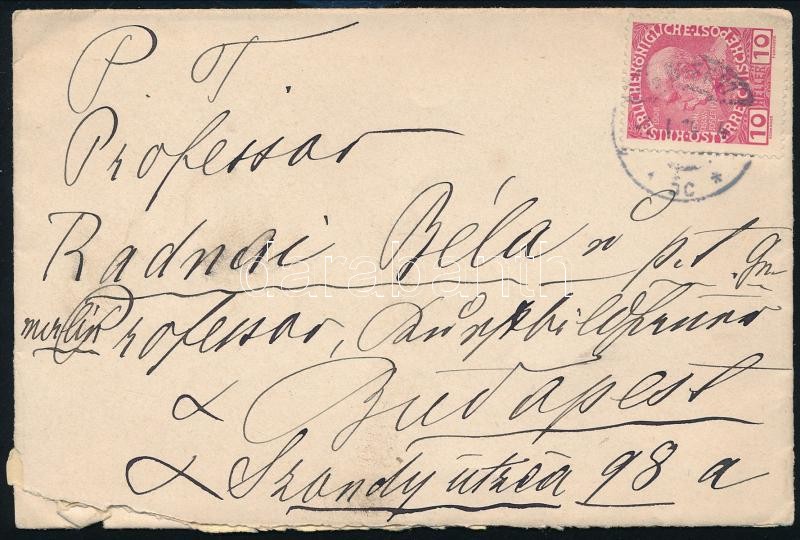 P. T.
Professor
Radnai Béla
Professor,
Budapest
Szondy utcza 98 a
KAISERLICHE KÖNIGLICHE
ÖSTERREICHISCHE POST
10 HELLER 10
darabanth